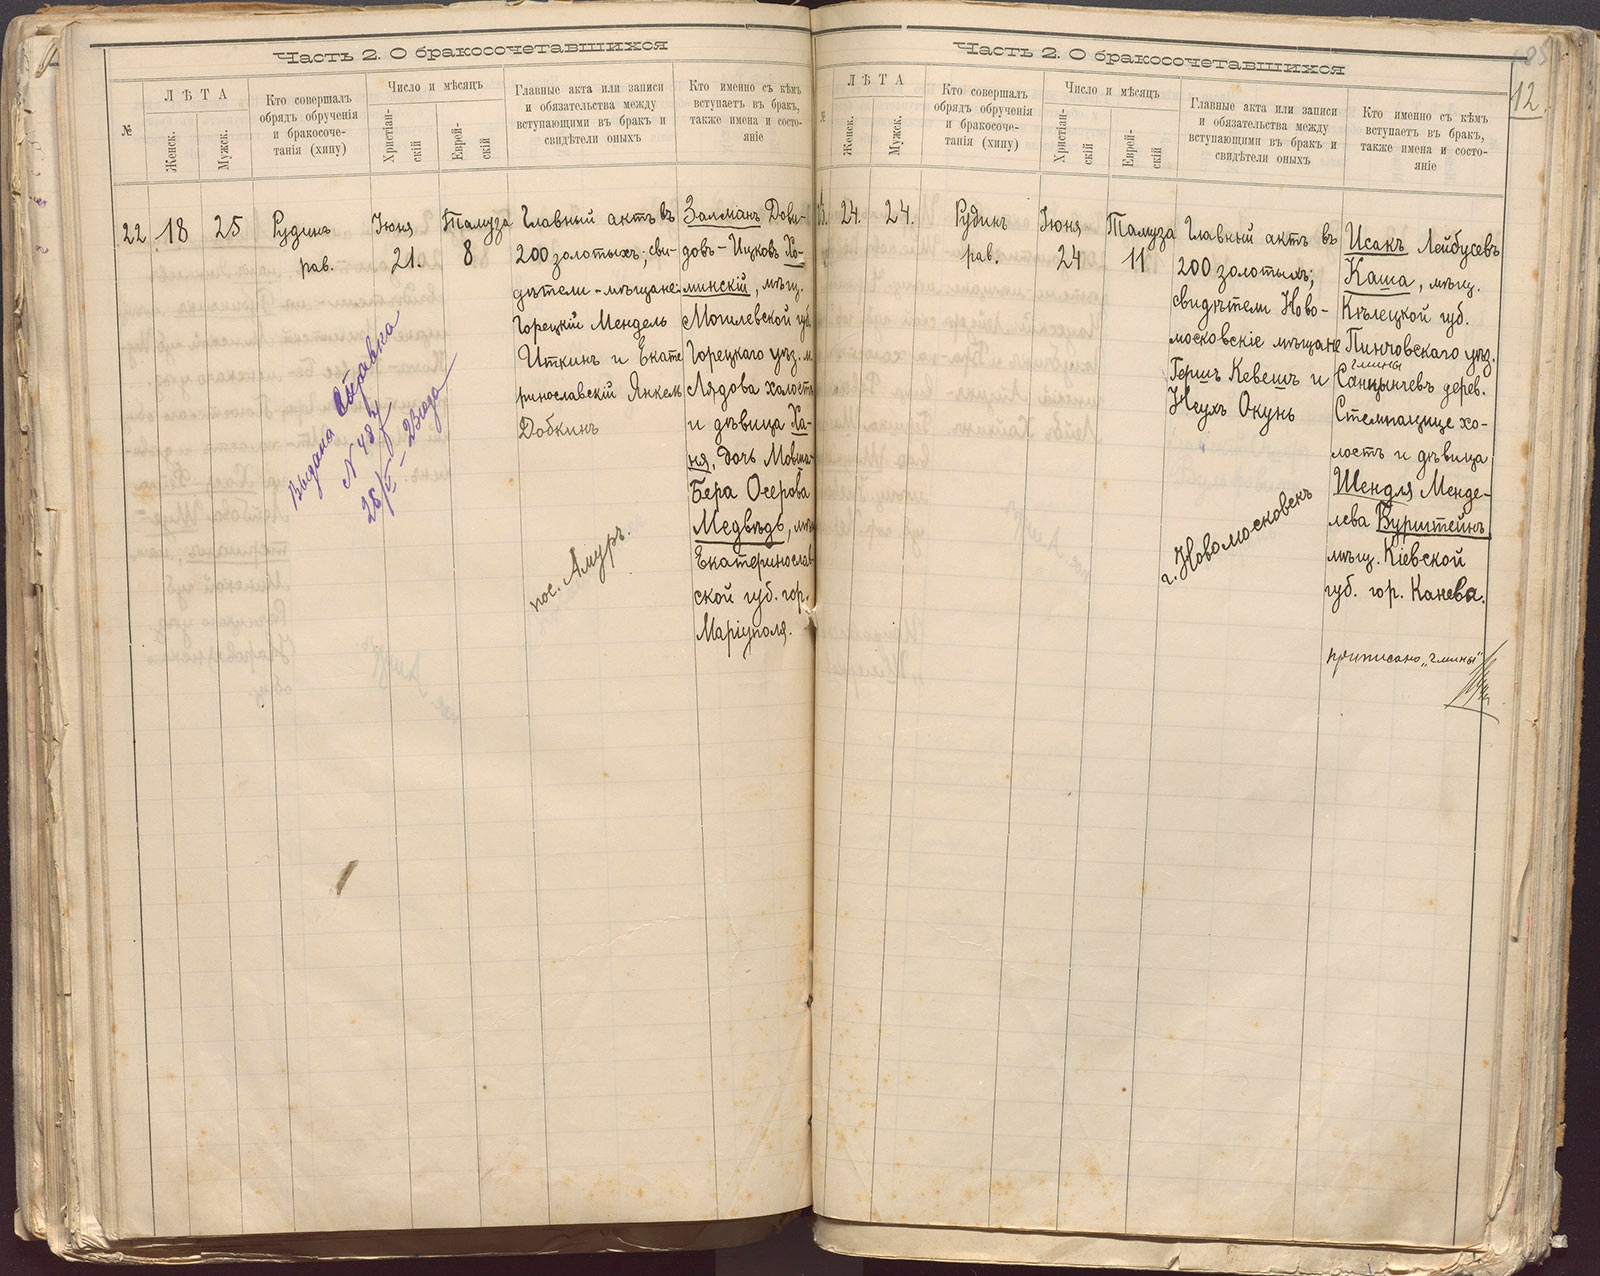 Часть 2. О бракосочетавшихся
№
ЛѢТА
Женск.
Мужск.
Кто совершалъ
обрядъ обрученія
и бракосоче-
танія (хипу)
Число и мѣсяцъ
Христіан-
скій
Еврей-
скій
Главные акта или записи
и обязательства между
вступающими въ бракъ и
свидѣтели оныхъ
Кто именно съ кѣмъ
вступаетъ въ бракъ,
также имена и состо-
яніе
22
18
25
Рудинъ
рав.
Іюня
21.
Тамуза
8
Главный актъ въ
200 золотыхъ; сви-
дѣтели - мѣщане:
Горецкій Мендель
Иткинъ и Екате
ринославскій Янкель
Добкинъ
пос. Амуръ.
Залманъ Дови-
довъ - Ицковъ Хо-
минскій, мѣщ.
Могилевской губ.
Горецкаго уѣз. м.
Лядова холостъ
и дѣвица Ха-
ня, дочь Мовша-
Бера Осерова
Медвѣдь, мѣщ.
Екатеринослав
ской губ. гор.
Маріуполя.
Выдана справка
N 48
28/V - 2Вюда
Часть 2. О бракосочетавшихся
12.
№
ЛѢТА
Женск.
Мужск.
Кто совершалъ
обрядъ обрученія
и бракосоче-
танія (хипу)
Число и мѣсяцъ
Христіан-
скій
Еврей-
скій
Главные акта или записи
и обязательства между
вступающими въ бракъ и
свидѣтели оныхъ
Кто именно съ кѣмъ
вступаетъ въ бракъ,
также имена и состо-
яніе
24.
24.
Рудинъ
рав.
Іюня
24
Тамуза
11
Главный актъ въ
200 золотыхъ;
свидѣтели Ново-
московскіе мѣщане
Гершъ Кевешъ и
Неухъ Окунь
г. Новомосковскъ
Исакъ Лейбусевъ
Каша, мѣщ.
Кѣлецкой губ.
Пинчовскаго уѣз.
гмины
Санцынчевъ дерев.
Стемпащице хо-
лостъ и дѣвица
Шендля Менде-
лева Бурштейнъ
мѣщ. Кіевской
губ. гор. Канева.
приписано „гмины"